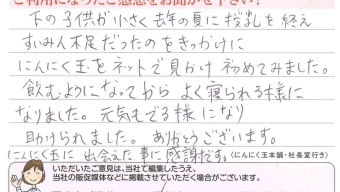 ご利用になったご感想をお聞かせ下さい!
下の子供が小さく去年の夏に授乳を終え
すいみん不足だったのをきっかけに
にんにく玉をネットで見かけ初めてみました。
飲むようになってから よく寝られる様に
なりました。元気もでる様になり
助けられました。ありがとうございます。
にんにく玉に 出会えた事に感謝です。(にんにく玉本舗・社長宣行き)
いただいたご意見は、当社で編集したうえ、
当社の販促媒体などに掲載させていただく場合がございます。